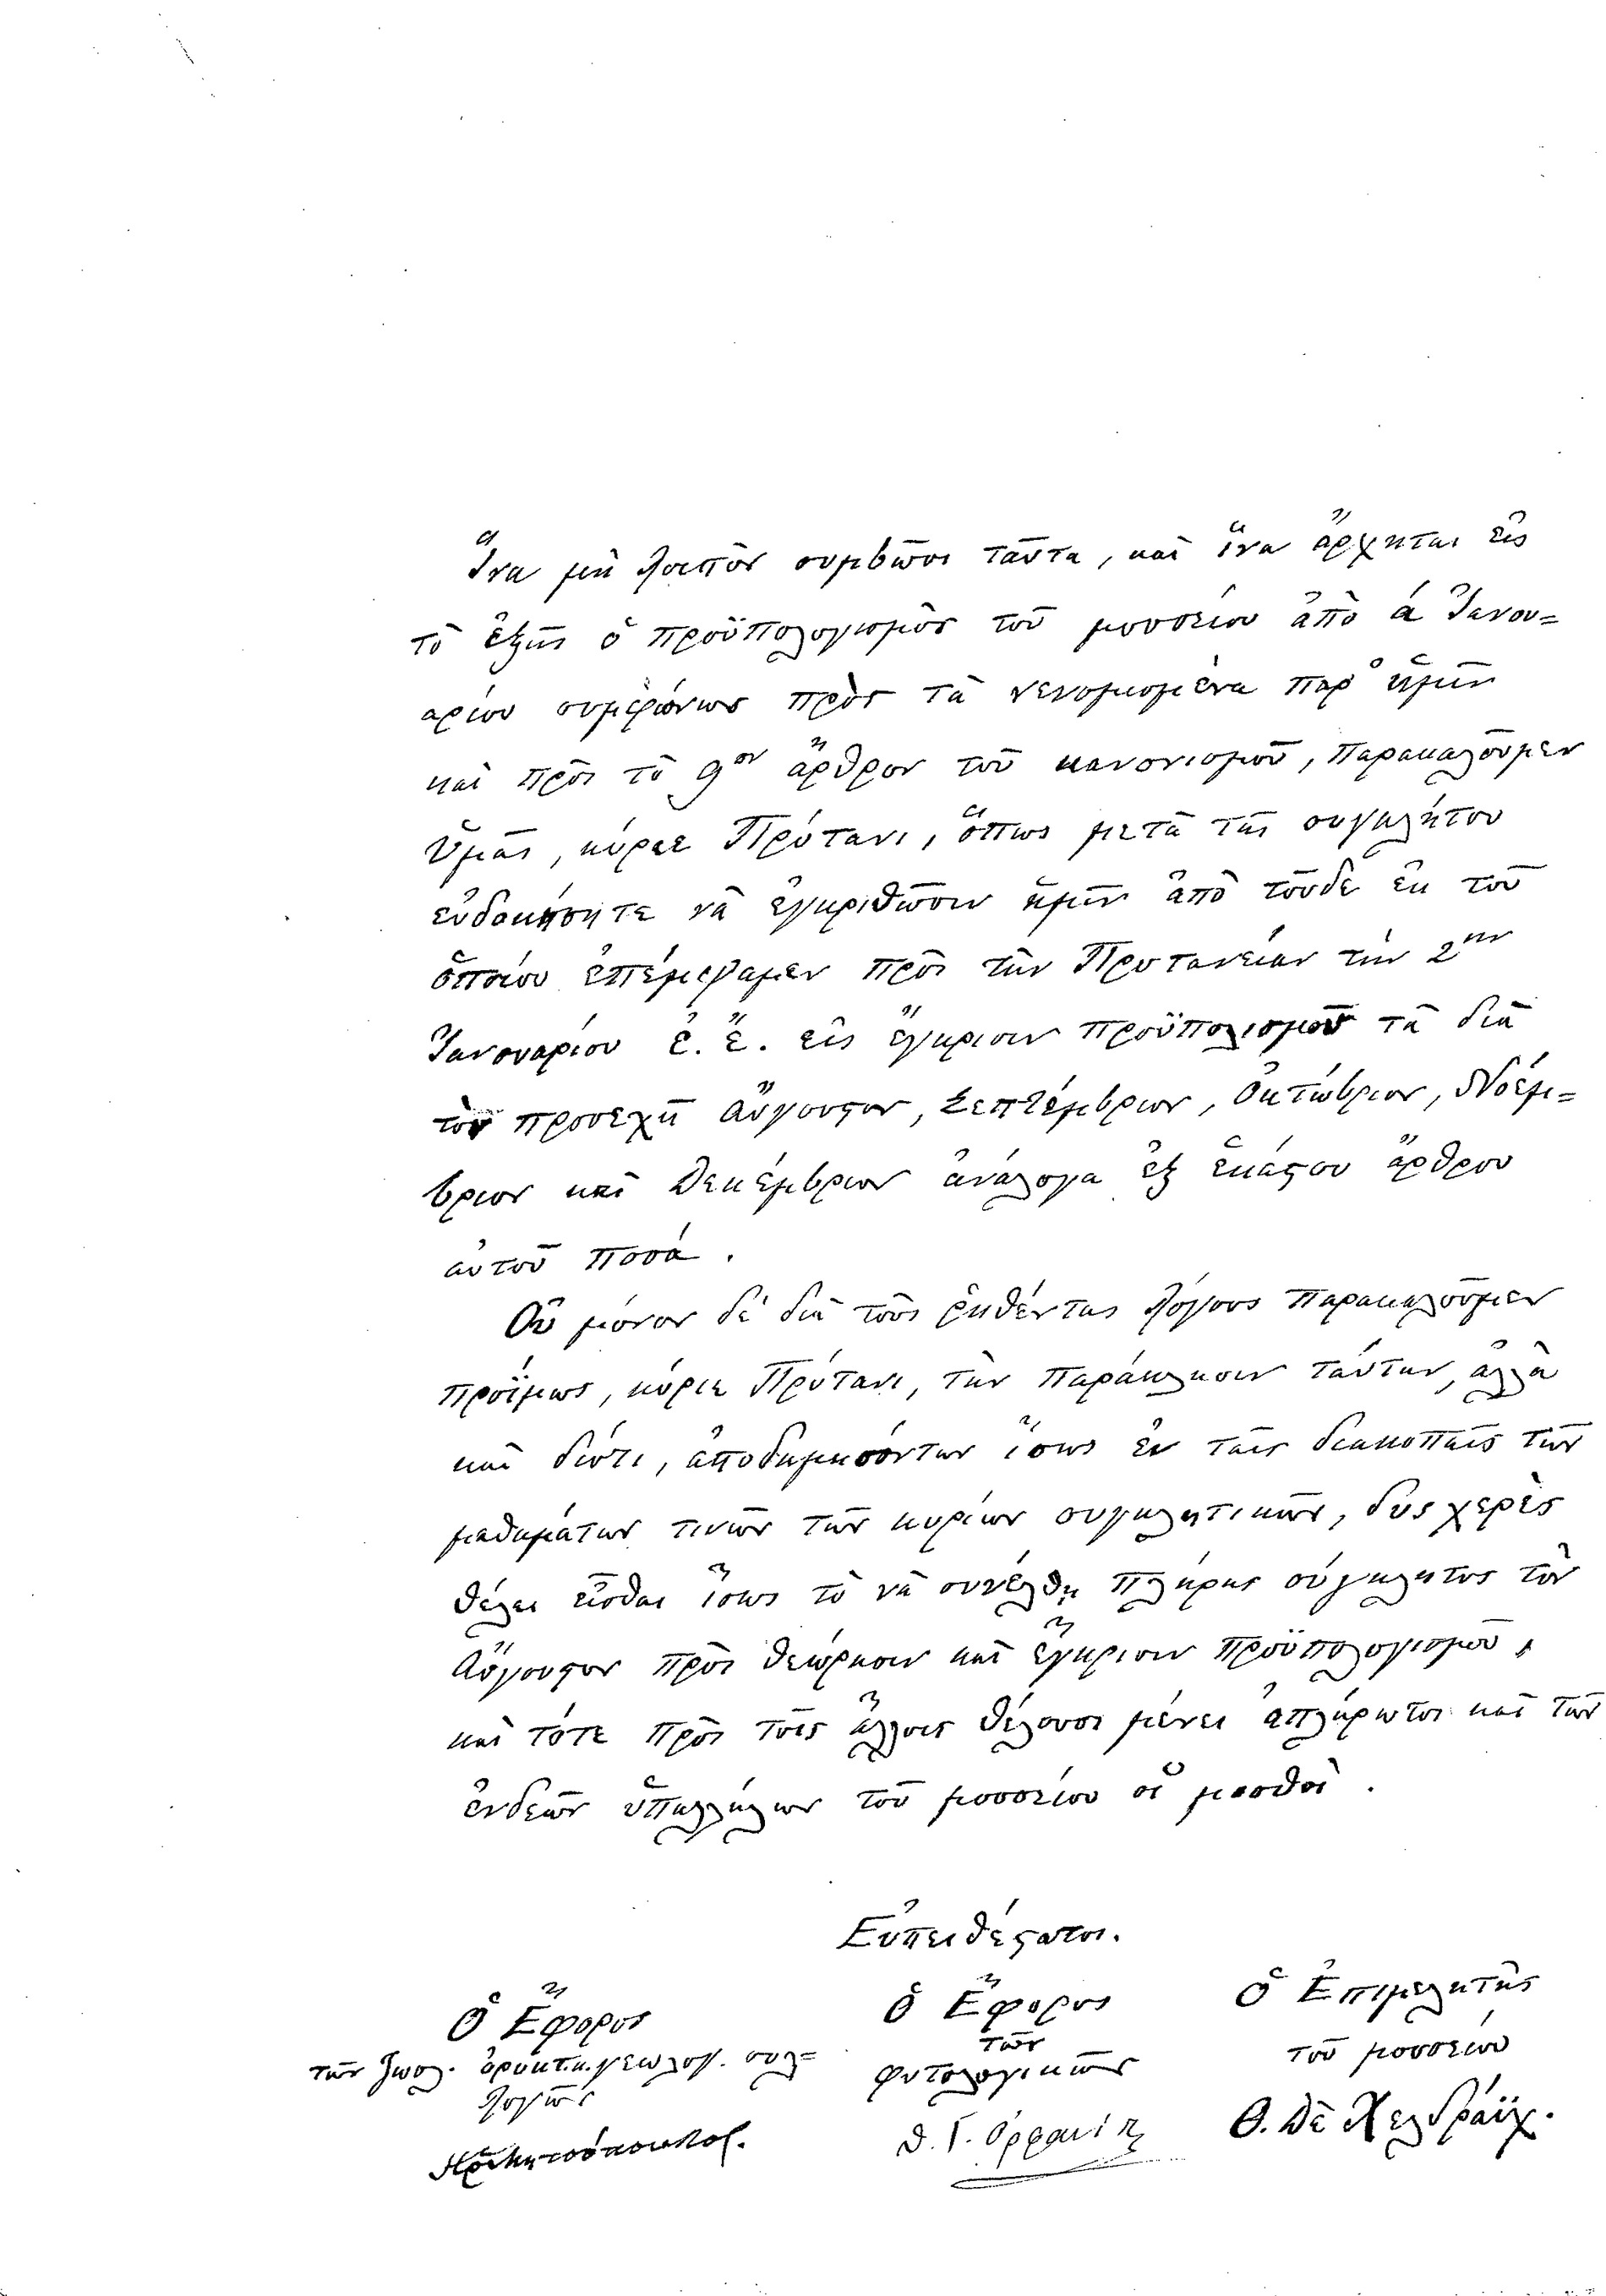 Ἵνα μὴ λοιπὸν συμβῶσι ταῦτα, καὶ ἵνα ἄρχηται εἰς
τὸ ἑξῆς ὁ προϋπολογισμὸς τοῦ μουσείου ἀπὸ ά Ἰανου=
αρίου συμφώνως πρὸς τὰ νενομισμένα παρ' ἡμῖν
καὶ πρὸς τὸ 9ον ἄρθρον τοῦ κανονισμοῦ, παρακαλοῦμεν
Ὑμᾶς, κύριε Πρύτανι, ὅπως μετὰ τῆς συγκλήτου
εὐδοκήσητε νὰ ἐγκριθῶσιν ἡμῖν ἀπὸ τοῦδε ἐκ τοῦ
ὁποίου ἐπέμψαμεν πρὸς τὴν Πρυτανείαν τὴν 2αν
Ἰανουαρίου ἐ. ἔ. εἰς ἔγκρισιν προϋπολισμοῦ τὰ διὰ
τὸν προσεχῆ Αὔγουστον, Σεπτέμβριον, Ὀκτώβριον, Νοέμ=
βριον καὶ Δεκέμβριον ἀνάλογα ἐξ ἑκάστου ἄρθρου
αὐτοῦ ποσά.
Οὐ μόνον δὲ διὰ τοὺς ῥηθέντας λόγους παρακαλοῦμεν
προΐμως, κύριε Πρύτανι, τὴν παράκλησιν ταύτην, ἀλλὰ
καὶ διότι, ἀποδημησόντων ἴσως ἐν ταῖς διακοπαῖς τῶν
μαθημάτων τινῶν τῶν κυρίων συγκλητικῶν, δυσχερὲς
θέλει εἶσθαι ἴσως τὸ νὰ συνέλθῃ πλήρης σύγκλητος τὸν
Αὔγουστον πρὸς θεώρησιν καὶ ἔγκρισιν προϋπολογισμοῦ,
καὶ τότε πρὸς τοῖς ἄλλοις θέλουσι μένει ἀπλήρωτοι καὶ τῶν
ἐνδεῶν ὑπαλλήλων τοῦ μουσείου οἱ μισθοί.
Εὐπειθέστατοι.
Ὁ Ἔφορος
τῶν ζωολ. ὀρυκτ.κ. γεωλογ. συλ=
λογῶν
Ὁ Ἔφορος
τῶν
φυτολογικῶν
Θ. Γ. Ὀρφανίδης
Ὁ Ἐπιμελητὴς
τοῦ μουσείου
Θ. Δὲ Χελδράϊχ.